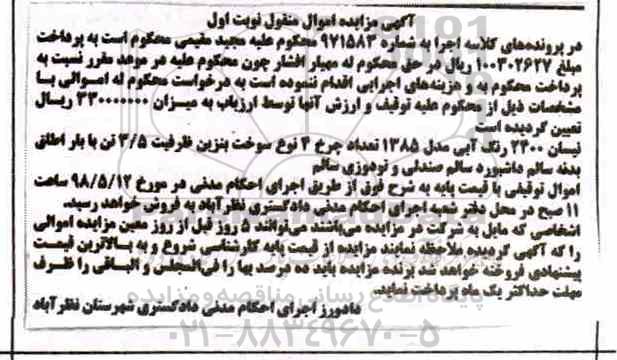 آگهی مزایده اموال منقول نوبت اول
در پرونده‌های کلاسه اجرا به شماره ۹۷۱۵۸۳ محکوم علیه مجید مقیمی محکوم است به پرداخت
مبلغ ۱۰۰۳۰۲۶۲۷ ریال در حق محکوم له مهیار افشار چون محکوم علیه در موعد مقرر نسبت به
پرداخت محکوم به و هزینه‌های اجرایی اقدام ننموده است به درخواست محکوم له اموالی با
مشخصات ذیل از محکوم علیه توقیف و ارزش آنها توسط ارزیاب به میزان ۳۳۰۰۰۰۰۰۰ ریال
تعیین گردیده است
نیسان ۲۴۰۰ رنگ آبی مدل ۱۳۸۵ تعداد چرخ ۴ نوع سوخت بنزین ظرفیت ۳/۵ تن با بار اطاق
بدنه سالم داشبورد سالم صندلی و تودوزی سالم
اموال توقیفی با قیمت پایه به شرح فوق از طریق اجرای احکام مدنی در مورخ ۹۸/۵/۱۲ ساعت
۱۱ صبح در محل دفتر شعبه اجرای احکام مدنی دادگستری نظرآباد به فروش خواهد رسید.
اشخاصی که مایل به شرکت در مزایده می‌باشند می‌توانند ۵ روز قبل از روز معین مزایده اموالی
را که آگهی گردیده ملاحظه نمایند مزایده از قیمت پایه کارشناسی شروع و به بالاترین قیمت
پیشنهادی فروخته خواهد شد برنده مزایده باید ده درصد بها را فی‌المجلس و الباقی را ظرف
مهلت حداکثر یک ماه پرداخت نماید.
دادورز اجرای احکام مدنی دادگستری شهرستان نظرآباد
پایگاه اطلاع رسانی مناقصه و مزایده
۰۲۱-۸۸۳۴۹۶۷۰-۵